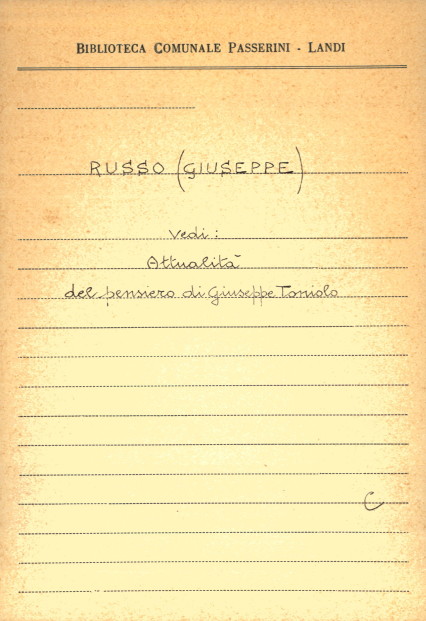 BIBLIOTECA COMUNALE PASSERINI - LANDI
RUSSO (GIUSEPPE)
Vedi:
Attualità
del pensiero di Giuseppe Toniolo
C